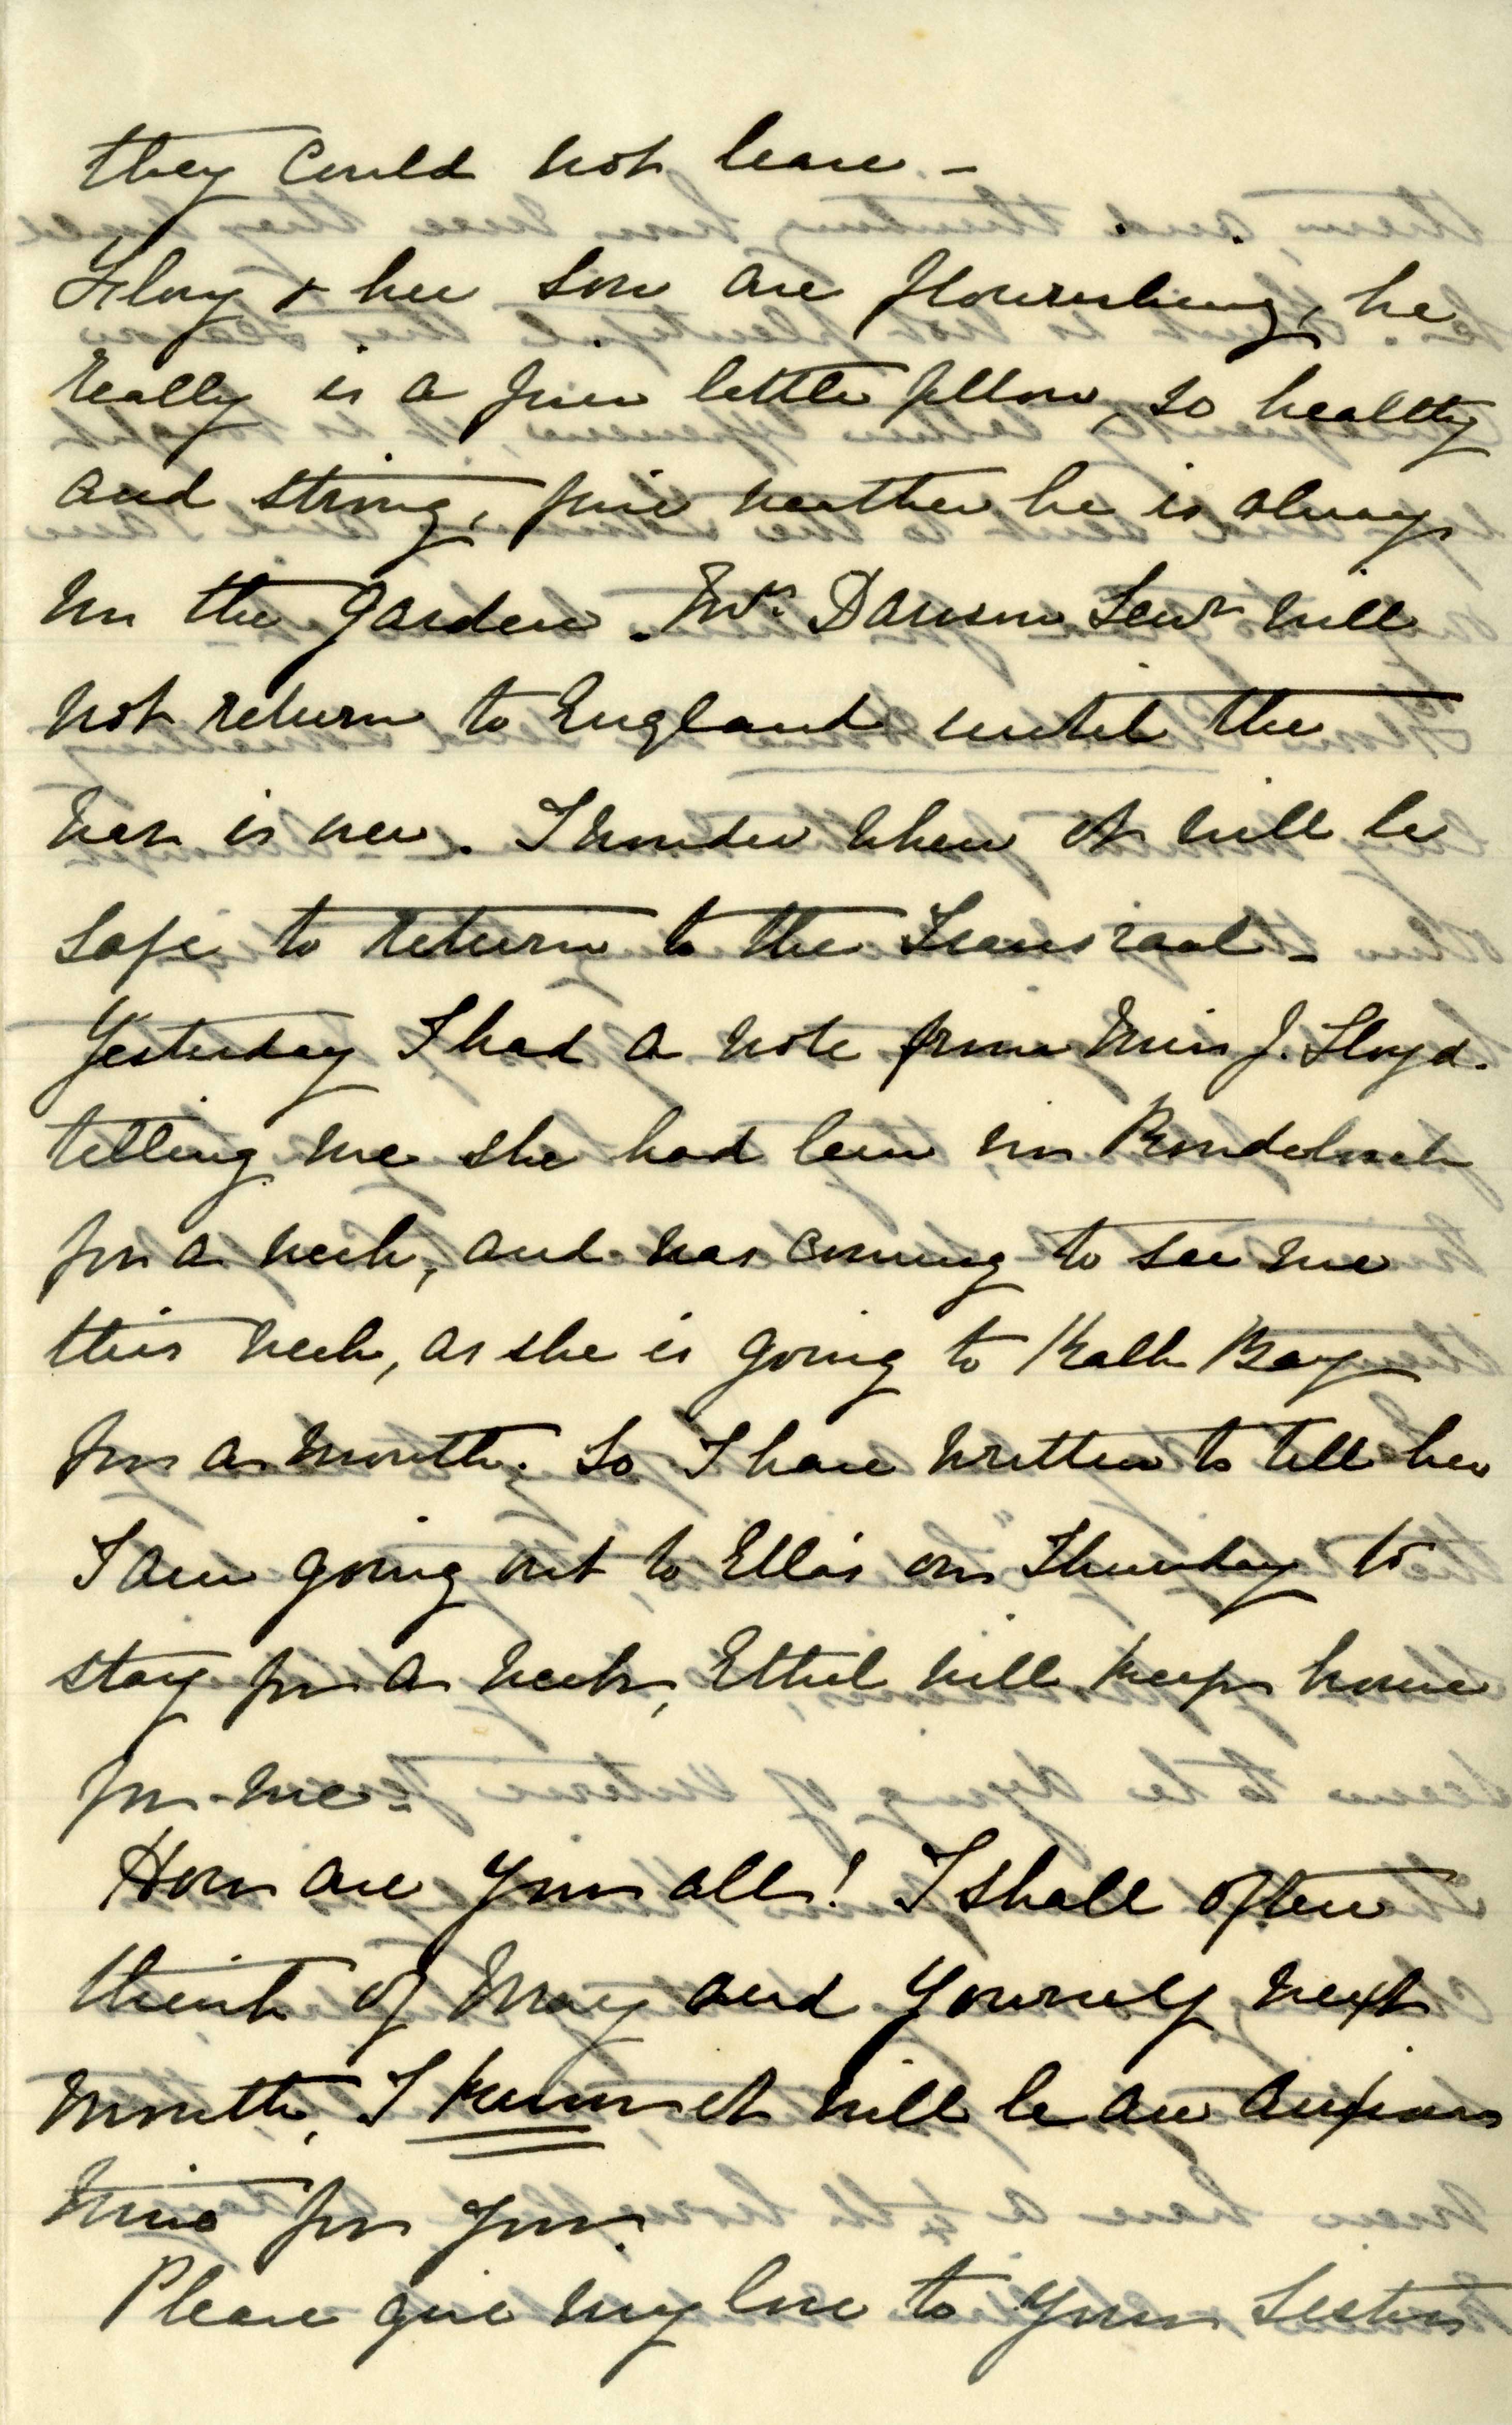 they could not leave –
Flory & her son are flourishing, he
really is a fine little fellow, so healthy
and strong, fine weather he is always
in the garden. Mrs. Dawson Senr will
not return to England until the
war is over. I wonder when it will be
safe to return to the Transvaal –
Yesterday I had a note from Miss J. Lloyd.
telling me she had been in Rondebosch
for a week, and was coming to see me
this week, as she is going to Kalk Bay
for a month. So I have written to tell her
I am going out to Ella's on Thursday to
stay for a week, Ethel will keep house
for me –
How are you all! I shall often
think of May and yourself next
month, I know it will be an anxious
time for you.
Please give my love to your Sisters